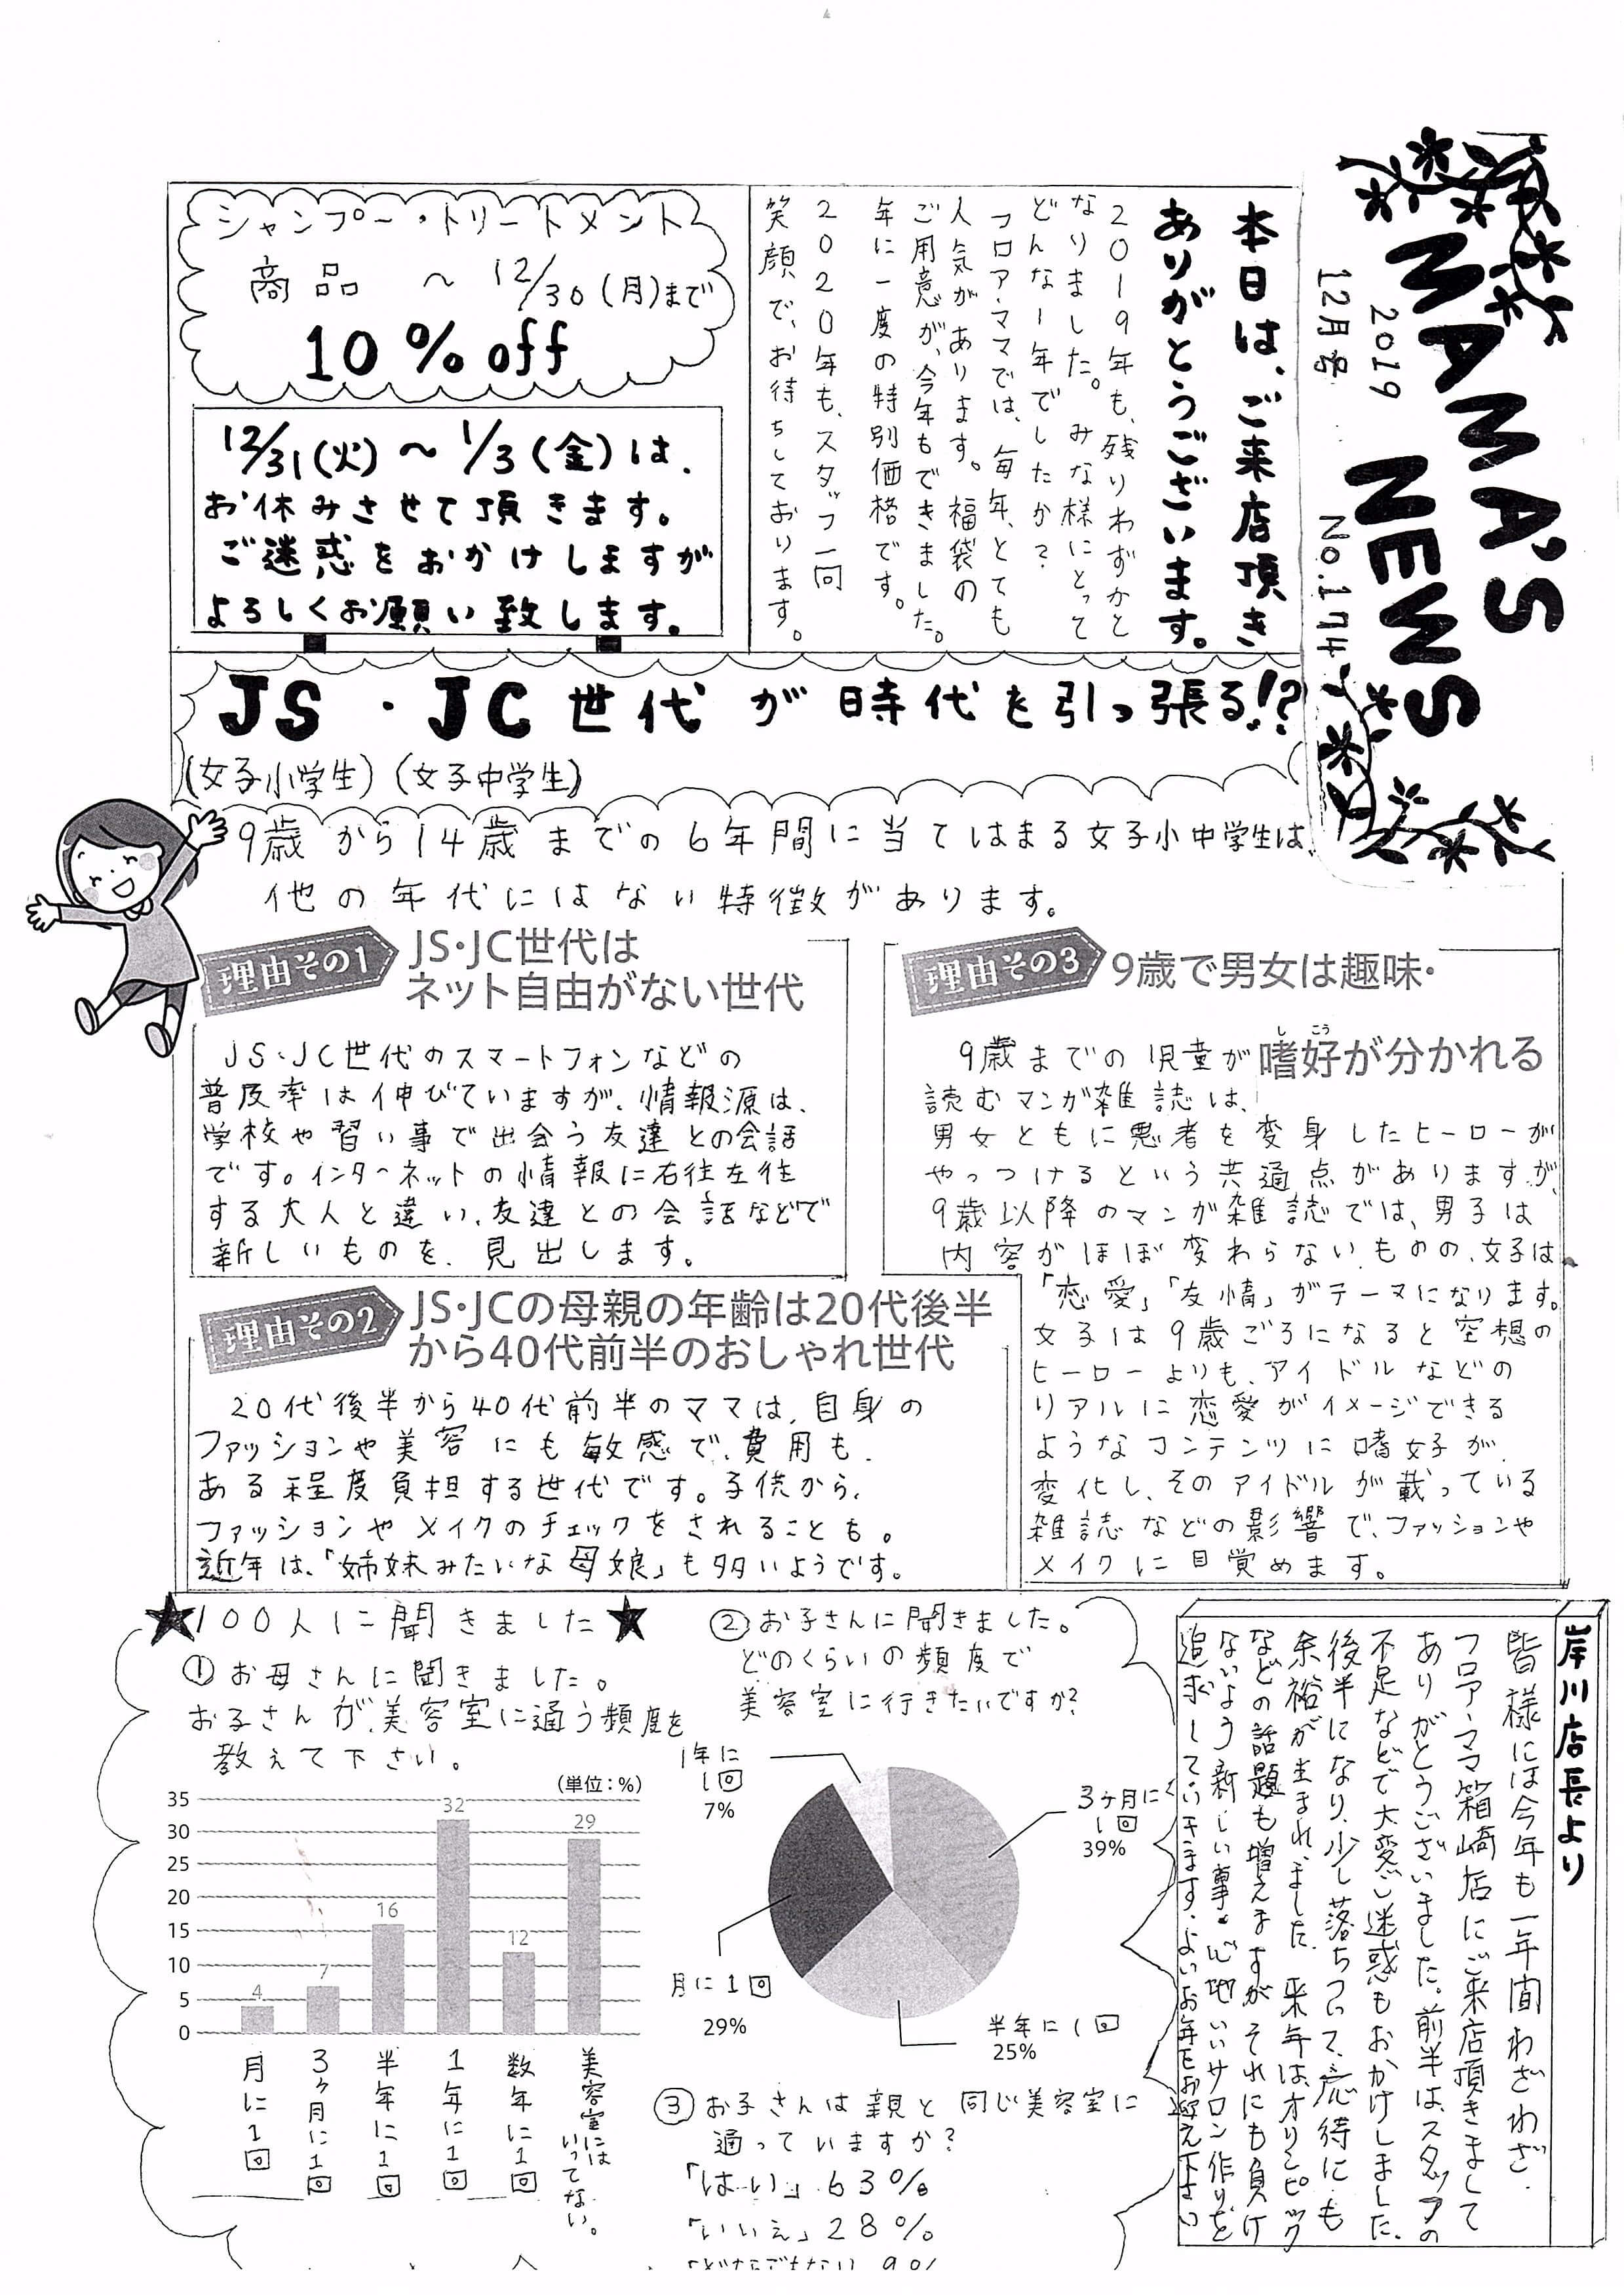 MAMA'S
NEWS
2019
12月号
No.174
本日は、ご来店頂き
ありがとうございます。
2019年も、残りわずかと
なりました。みな様にとって
どんな1年でしたか?
フロア・ママでは、毎年、とても
人気があります。福袋の
ご用意が、今年もできました。
年に一度の特別価格です。
2020年も、スタッフ一同
笑顔で、お待ちしております。
シャンプー・トリートメント
商品 ~ 12/30(月)まで
10%off
12/31(火)~1/3(金)は、
お休みさせて頂きます。
ご迷惑をおかけしますが
よろしくお願い致します。
JS・JC世代が時代を引っ張る!?
(女子小学生)(女子中学生)
9歳から14歳までの6年間に当てはまる女子小中学生は、
他の年代にはない特徴があります。
理由その1
JS・JC世代は
ネット自由がない世代
JS・JC世代のスマートフォンなどの
普及率は伸びていますが、情報源は、
学校や習い事で出会う友達との会話
です。インターネットの情報に右往左往
する大人と違い、友達との会話などで
新しいものを、見出します。
理由その2
JS・JCの母親の年齢は20代後半
から40代前半のおしゃれ世代
20代後半から40代前半のママは、自身の
ファッションや美容にも敏感で、費用も、
ある程度負担する世代です。子供から、
ファッションやメイクのチェックをされることも。
近年は、「姉妹みたいな母娘」も多いようです。
理由その3
9歳で男女は趣味・
しこう
嗜好が分かれる
9歳までの児童が
読むマンガ雑誌は、
男女ともに悪者を変身したヒーローが
やっつけるという共通点がありますが、
9歳以降のマンガ雑誌では、男子は
内容がほぼ変わらないものの、女子は
「恋愛」「友情」がテーマになります。
女子は9歳ごろになると空想の
ヒーローよりも、アイドルなどの
リアルに恋愛がイメージできる
ようなコンテンツに嗜好が
変化し、そのアイドルが載っている
雑誌などの影響で、ファッションや
メイクに目覚めます。
★100人に聞きました★
①お母さんに聞きました。
お子さんが、美容室に通う頻度を
教えて下さい。
(単位:%)
35
30
25
20
15
10
5
0
4
7
16
32
12
29
月に1回
3ヶ月に1回
半年に1回
1年に1回
数年に1回
美容室には
いってない。
②お子さんに聞きました。
どのくらいの頻度で
美容室に行きたいですか?
1年に
1回
7%
3ヶ月に
1回
39%
月に1回
29%
半年に1回
25%
③お子さんは親と同じ美容室に
通っていますか?
「はい」63%
「いいえ」28%
「どちらでもない」9%
岸川店長より
皆様には今年も一年間わざわざ、
フロア・ママ箱崎店にご来店頂きまして
ありがとうございました。前半は、スタッフの
不足などで大変ご迷惑もおかけしました。
後半になり、少し落ちついて、応待にも
余裕が生まれました。来年はオリンピック
などの話題も増えますが それにも負け
ないよう新しい事。心地いいサロン作りを
追求していきます。よいお年をお迎え下さい